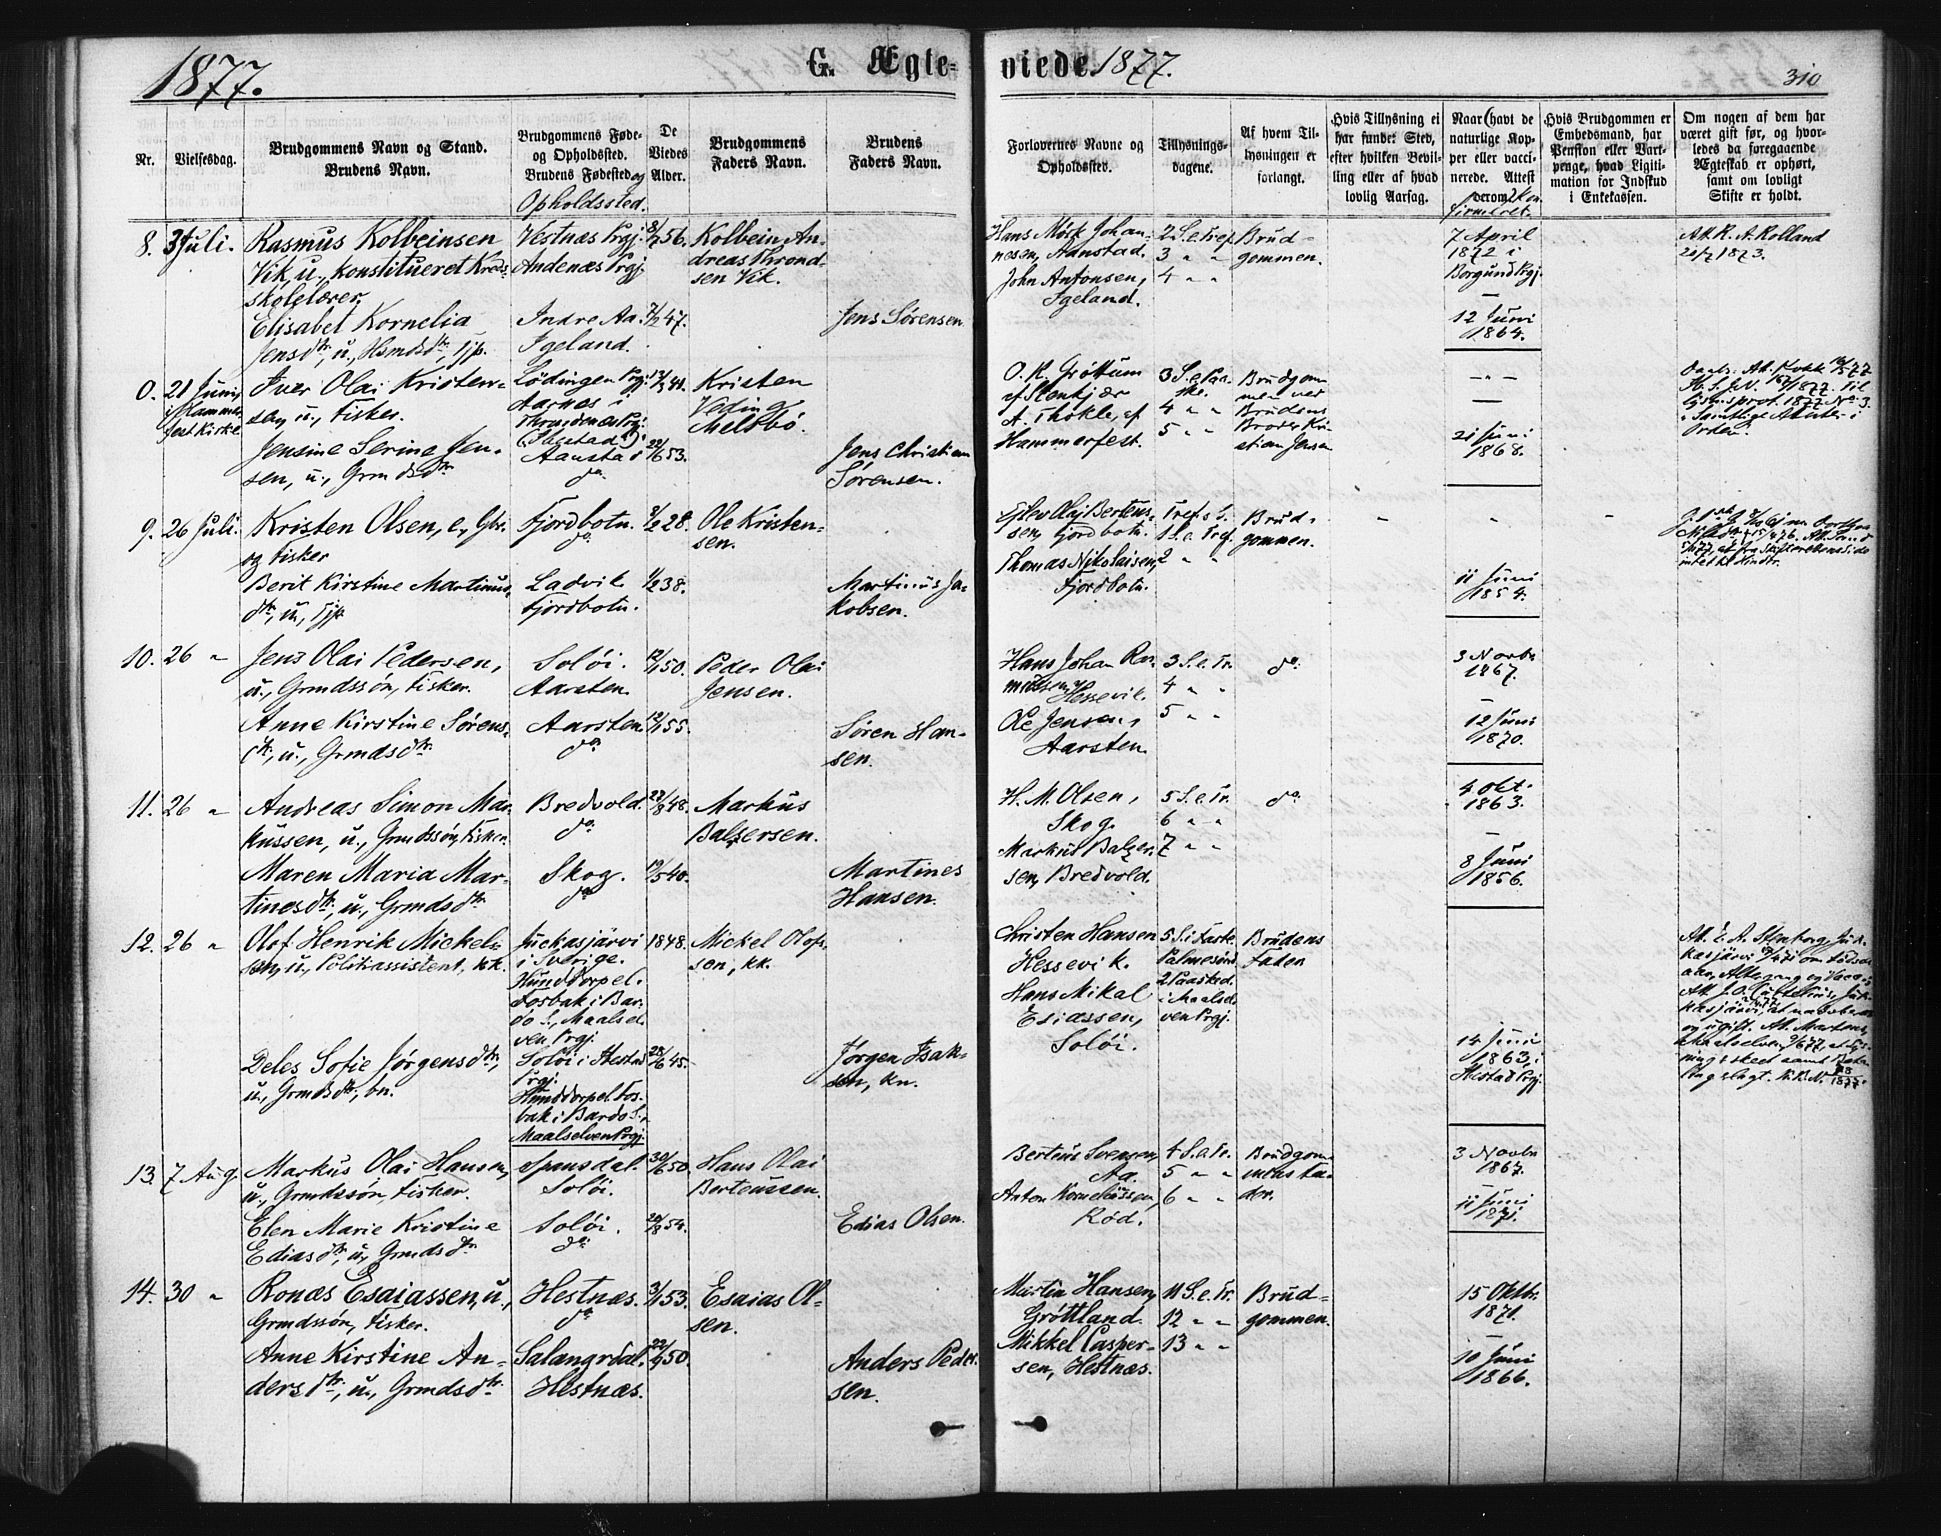 1877. G. Ægte-
viede. 1877.
310
Nr.
Vielsesdag.
Brudgommens Navn og Stand.
Brudens Navn.
Brudgommens Føde-
og Opholdssted.
Brudens Fødested og
Opholdssted.
De
Viedes
Alder.
Brudgommens
Faders Navn.
Brudens
Faders Navn.
Forlovernes Navne og
Opholdssted.
Tillysnings-
dagene.
Af hvem Til-
lysningen er
forlangt.
Hvis Tillysning ei
har fundet Sted,
efter hvilken Bevil-
ling eller af hvad
lovlig Aarsag.
Naar (havt de
naturlige Kop-
per eller vacci-
nerede. Attest
derom) Kon
firmeret.
Hvis Brudgommen er
Embedsmand, har
Pension eller Vart-
penge, hvad Ligiti-
mation for Indskud
i Enkekassen.
Om nogen af dem har
været gift før, og hvor-
ledes da foregaaende
Ægteskab er ophørt,
samt om lovligt
Skifte er holdt.
8. 3 Juli.
Rasmus Kolbeinsen
Vik, u., konstitueret Kreds-
skolelærer.
Elisabet Kornelia
Jensdtr, u., Hsmdsdtr, tjp.
Vestnæs Prgj.
Andenæs Prgj.
Indre Aa.
Igeland.
8/7 56.
7/2 47.
Kolbein An-
dreas Thrond-
sen Vik.
Jens Sørensen.
Hans Mørk Johan-
nesen, Aanstad.
John Antonsen,
Igeland.
2 S. e. Tref.
3 " "
4 " "
Brud-
gommen.
7 April
1872 i
Borgund Prgj.
12 Juni
1864.
Att. R. A. Rolland
1873.
0. 21 Juni,
i Hammer-
fest Kirke
Iver Olai Kristen-
sen, u., Fisker.
Jensine Serine Jen-
sen, u., Grmdsdtr.
Lödingen Prgj.
Aarnes i
Throndenes Prgj.
Aanstad
do.
22/6 53.
Kristen
Melsbö.
Jens Christian
Sørensen.
O. K. Grøttum
af Stenkjær
A. Thokle, af
Hammerfest.
3 S. e. Paa-
ske.
4 " "
5 " "
Brudgom
men ved
Brudens
Broder Kri-
stian Jensen
21 Juni
1868.
9. 26 Juli.
Kristen Olsen, e., Gbr.
og Fisker
Berit Kirstine Martinus-
dtr, u., tjp.
Fjordbotn.
do.
Ladvik
Fjordbotn.
3/2 28.
1/2 38.
Ole Kristen-
sen.
Martinus Ja-
kobsen.
Eslev Olaj Berteus-
sen, Fjordbotn.
Thomas Nikolaisen,
Fjordbotn.
Tref. S.
1 S. e. Tref.
2 " "
Brud-
gommen.
11 Juni
1854.
10. 26 "
Jens Olai Pedersen,
u., Grmdssøn, Fisker.
Anne Kirstine Sørens-
dtr, u., Grmdsdtr.
Soløi.
Aarsten.
Aarsten.
do.
12/1 50.
12/1 55.
Peder Olai
Jensen.
Søren Han-
sen.
Hans Johan Ras-
mussen,
Hessevik.
Ole Jensen,
Aarsten.
3 S. e. Tr.
4 " "
5 " "
do.
3 Novbr
1867.
12 Juni
1870.
11. 26 "
Andreas Simon Mar-
kussen, u., Grmdssøn, Fisker.
Maren Maria Mar-
tinesdtr, u., Grmdsdtr.
Bredvold.
do.
Skog.
do.
28/8 48.
19/5 40.
Markus
Balzersen.
Martines
Hansen.
H. M. Olsen,
Skog.
Markus Balzer-
sen, Bredvold.
5 S. e. Tr.
6 " "
7 " "
do.
4 Okt.
1863.
8 Juni
1856.
12. 26 "
Olof Henrik Mickels-
son, u., Politiassistent, kk.
Deles Sofie Jørgensdtr,
u., Grmdsdtr, bn.
Juckasjärvi
i Sverige.
Hunddorpel.
Fosbak i Bar-
do S., Maalsel-
ven Prgj.
Soløi i Ibestad
Prgj.
Hunddorpel. Fos-
bak i Bardo S.,
Maalselven Prgj.
1848.
28/6 45.
Mickel Olofs-
son, kk.
Jørgen Isak-
sen, kn.
Christen Hansen
Hessevik.
Hans Mikal
Esiassen,
Soløi.
5 S. i Faste
Palmesønd.
2 Paasked.
i Maalsel-
ven Prgj.
Brudens
Fader
14 Juni
1863, i
Ibestad Prgj.
13. 7 Aug.
Markus Olai Hansen,
u., Grmdssøn, Fisker.
Elen Marie Kristine
Ediasdtr, u., Grmdsdtr
Spansdal.
Soløi.
Soløi.
do.
30/6 50.
20/8 54.
Hans Olai
Berteussen.
Edias Olsen.
Berteus Svensen,
Aa.
Anton Korneliussen,
Rød.
4 S. e. Tr.
5 " "
6 " "
Brudgom-
mens Fa-
der.
3 Novbr
1867.
11 Juni
1871.
14. 30 "
Ronæs Esaiassen, u.,
Grmdssøn, Fisker.
Anne Kirstine An-
dersdtr, u., Grmdsdtr.
Hestnæs.
do.
Salangsdal.
Hestnæs.
3/1 53.
22/9 50.
Esaias Ol-
sen.
Anders Peder-
sen.
Martin Hansen,
Grøttland.
Mikkel Casper-
sen, Hestnæs.
11 S. e. Tr.
12 " "
13 " "
Brud-
gommen.
15 Oktbr.
1871.
10 Juni
1866.